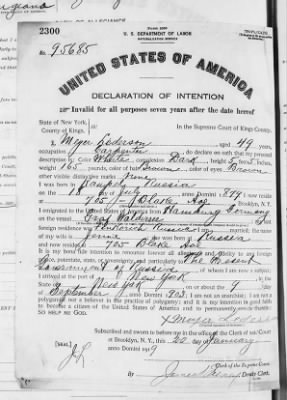 2300
Form 2203
TRIPLICATE
U. S. DEPARTMENT OF LABOR
NATURALIZATION SERVICE
No. 95685
UNITED STATES OF AMERICA
DECLARATION OF INTENTION
Invalid for all purposes seven years after the date hereof
State of New York,
County of Kings,
In the Supreme Court of Kings County.
I, Meyer, aged 49 years,
occupation Carpenter, do declare on oath that my personal
description is: Color White, complexion Dark, height 5 feet inches,
weight 165 pounds, color of hair Brown, color of eyes Brown
other visible distinctive marks None
I was born in Russia
on the 18 day of July, anno Domini 1; I now reside
at 705 Blake Ave, Brooklyn, N.Y.
I emigrated to the United States of America from Hamburg Germany
on the vessel; my last
foreign residence was Russia
wife is Jennie; Russia
and now at 705 Blake Ave
It is my bona fide intention to renounce forever all allegiance and fidelity to any foreign
prince, potentate, state, or sovereignty, and particularly to The Present
Government of Russia, of whom I am now a subject;
I arrived at the port of New York, in the
State of New York, on or about the 9 day
of September, anno Domini 190; I am not an anarchist; I am not a
polygamist nor a believer in the practice of polygamy; and it is my intention in good faith
to become a citizen of the United States of America and to permanently reside therein:
SO HELP ME GOD.
Subscribed and sworn to before me in the office of the Clerk of said Court
at Brooklyn, N.Y., this 20 day of January
anno Domini 1919
[SEAL]
Clerk of the Supreme Court.
By, Clerk.